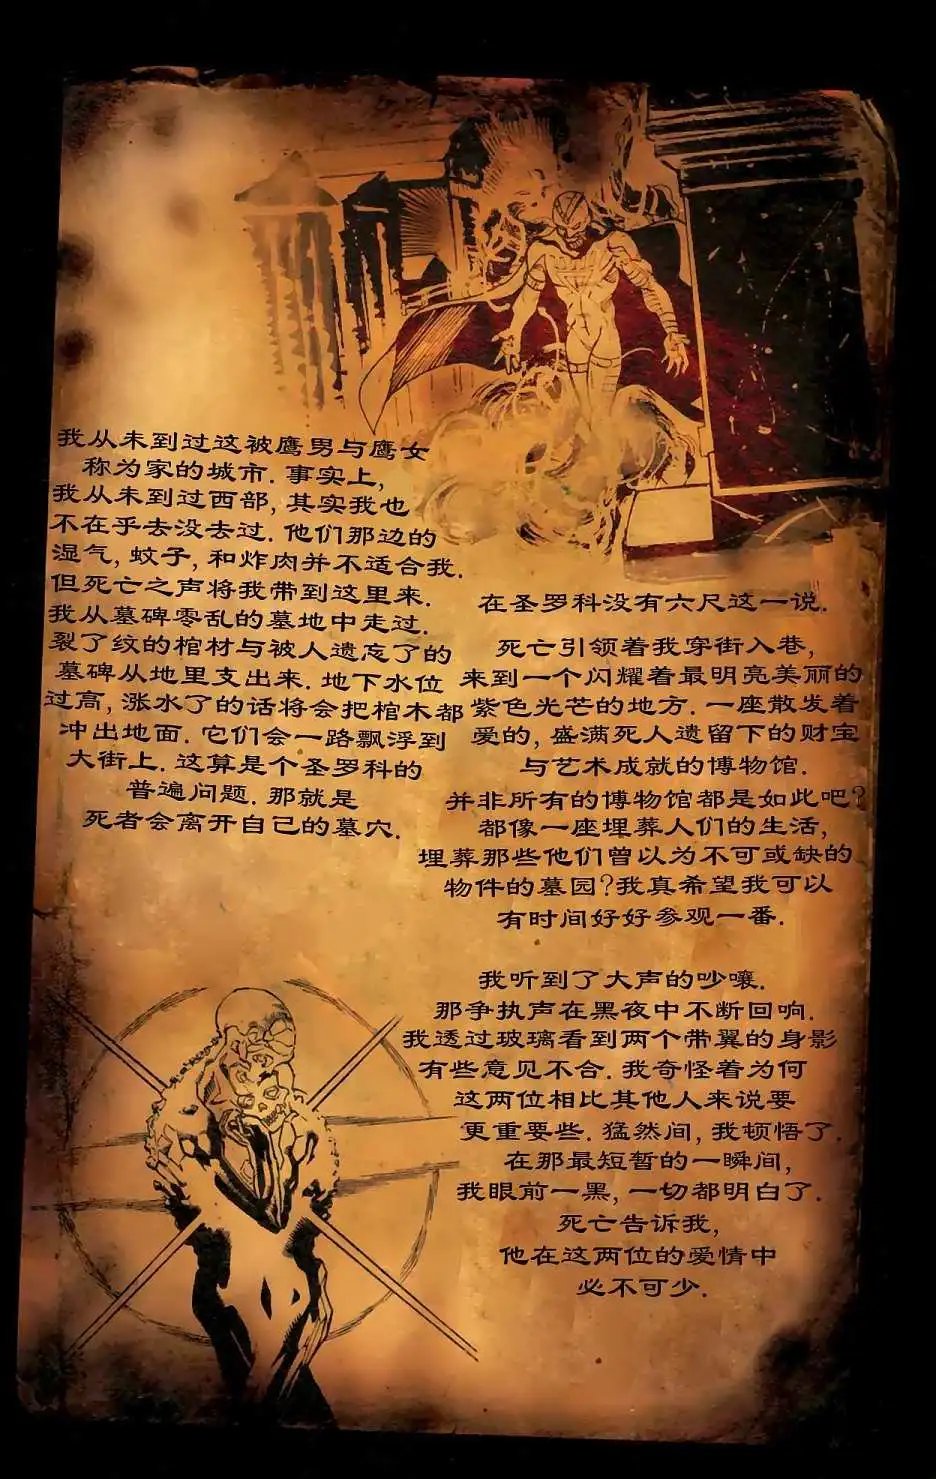 我从未到过这被鹰男与鹰女
称为家的城市. 事实上,
我从未到过西部, 其实我也
不在乎去没去过. 他们那边的
湿气, 蚊子, 和炸肉并不适合我.
但死亡之声将我带到这里来.
我从墓碑零乱的墓地中走过.
裂了纹的棺材与被人遗忘了的
墓碑从地里支出来. 地下水位
过高, 涨水了的话将会把棺木都
冲出地面. 它们会一路飘浮到
大街上. 这算是个圣罗科的
普遍问题. 那就是
死者会离开自己的墓穴.
在圣罗科没有六尺这一说.
死亡引领着我穿街入巷,
来到一个闪耀着最明亮美丽的
紫色光芒的地方. 一座散发着
爱的, 盛满死人遗留下的财宝
与艺术成就的博物馆.
并非所有的博物馆都是如此吧?
都像一座埋葬人们的生活,
埋葬那些他们曾以为不可或缺的
物件的墓园?我真希望我可以
有时间好好参观一番.
我听到了大声的吵嚷.
那争执声在黑夜中不断回响.
我透过玻璃看到两个带翼的身影
有些意见不合. 我奇怪着为何
这两位相比其他人来说要
更重要些. 猛然间, 我顿悟了.
在那最短暂的一瞬间,
我眼前一黑, 一切都明白了.
死亡告诉我,
他在这两位的爱情中
必不可少.